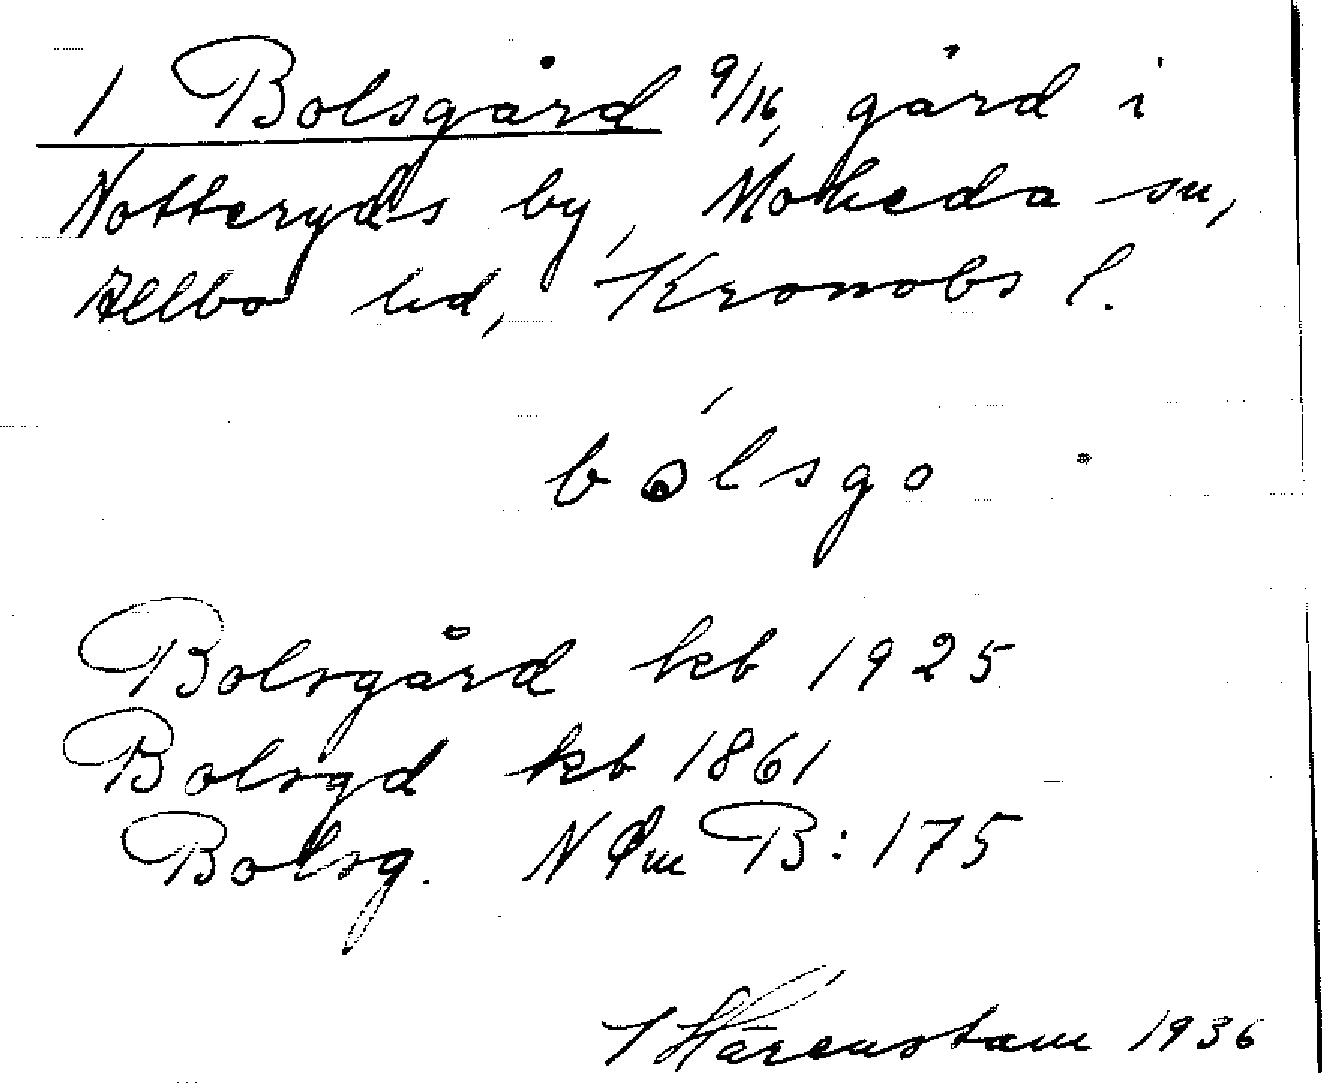 1 Bolsgård 9/16, gård i
Notteryds by, Moheda sn,
Allbo hd, Kronobs l.
bólsgo
Bolsgård kb 1925
Bolsgd kb 1861
Bolsg. N Öm B:175
Hårenstam 1936